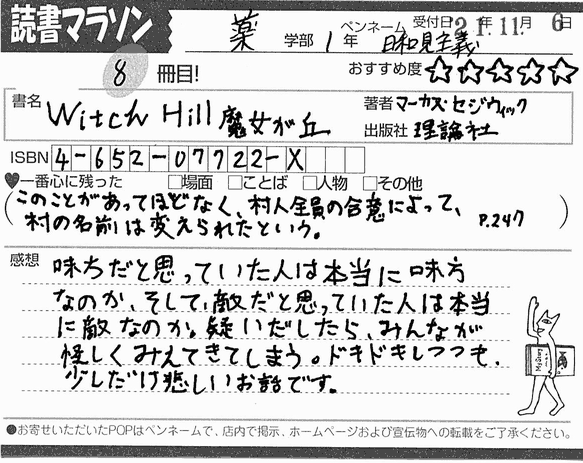 読書マラソン
薬 学部 1 年 ペンネーム 日和見主義 受付日 '21年 11月 6日
8 冊目! おすすめ度 ☆☆☆☆☆
書名 Witch Hill 魔女が丘 著者 マーカス・セジウィック
出版社 理論社
ISBN 4-652-07722-X
♥一番心に残った □場面 □ことば □人物 □その他
(このことがあってほどなく、村人全員の合意によって、
村の名前は変えられたという。 P.247)
感想 味ちだと思っていた人は本当に味方
なのか、そして、敵だと思っていた人は本当
に敵なのか。疑いだしたら、みんなが
怪しくみえてきてしまう。ドキドキしつつも、
少しだけ悲しいお話です。
●お寄せいただいたPOPはペンネームで、店内で掲示、ホームページおよび宣伝物への転載をご了承ください。